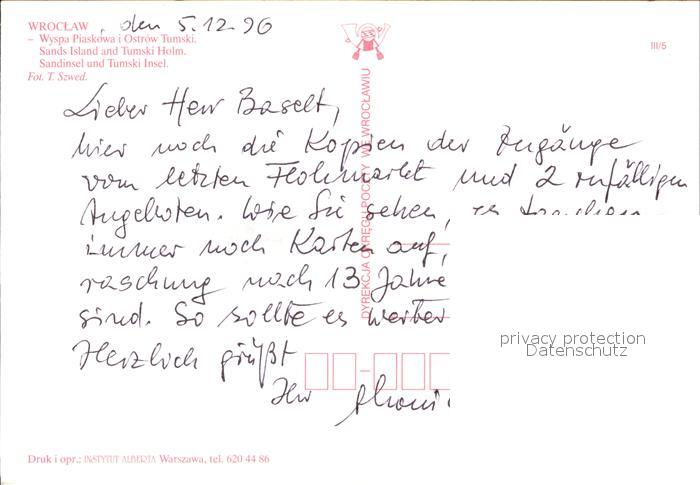 WROCŁAW, den 5.12.90
– Wyspa Piaskowa i Ostrów Tumski.
Sands Island and Tumski Holm.
Sandinsel und Tumski Insel.
Fot. T. Szwed.
III/5
Lieber Herr Baselt,
hier noch die Kopien der Zugänge
vom letzten Flohmarkt und 2 zufälligen
Angeboten. Wie Sie sehen, es tauchen
immer noch Karten auf,
raschung nach 13 Jahre
sind. So sollte es weiter
Herzlich grüßt
Ihr
DYREKCJA OKRĘGU POCZTY WE WROCŁAWIU
privacy protection
Datenschutz
Druk i opr.: INSTYTUT ALBERTA Warszawa, tel. 620 44 86